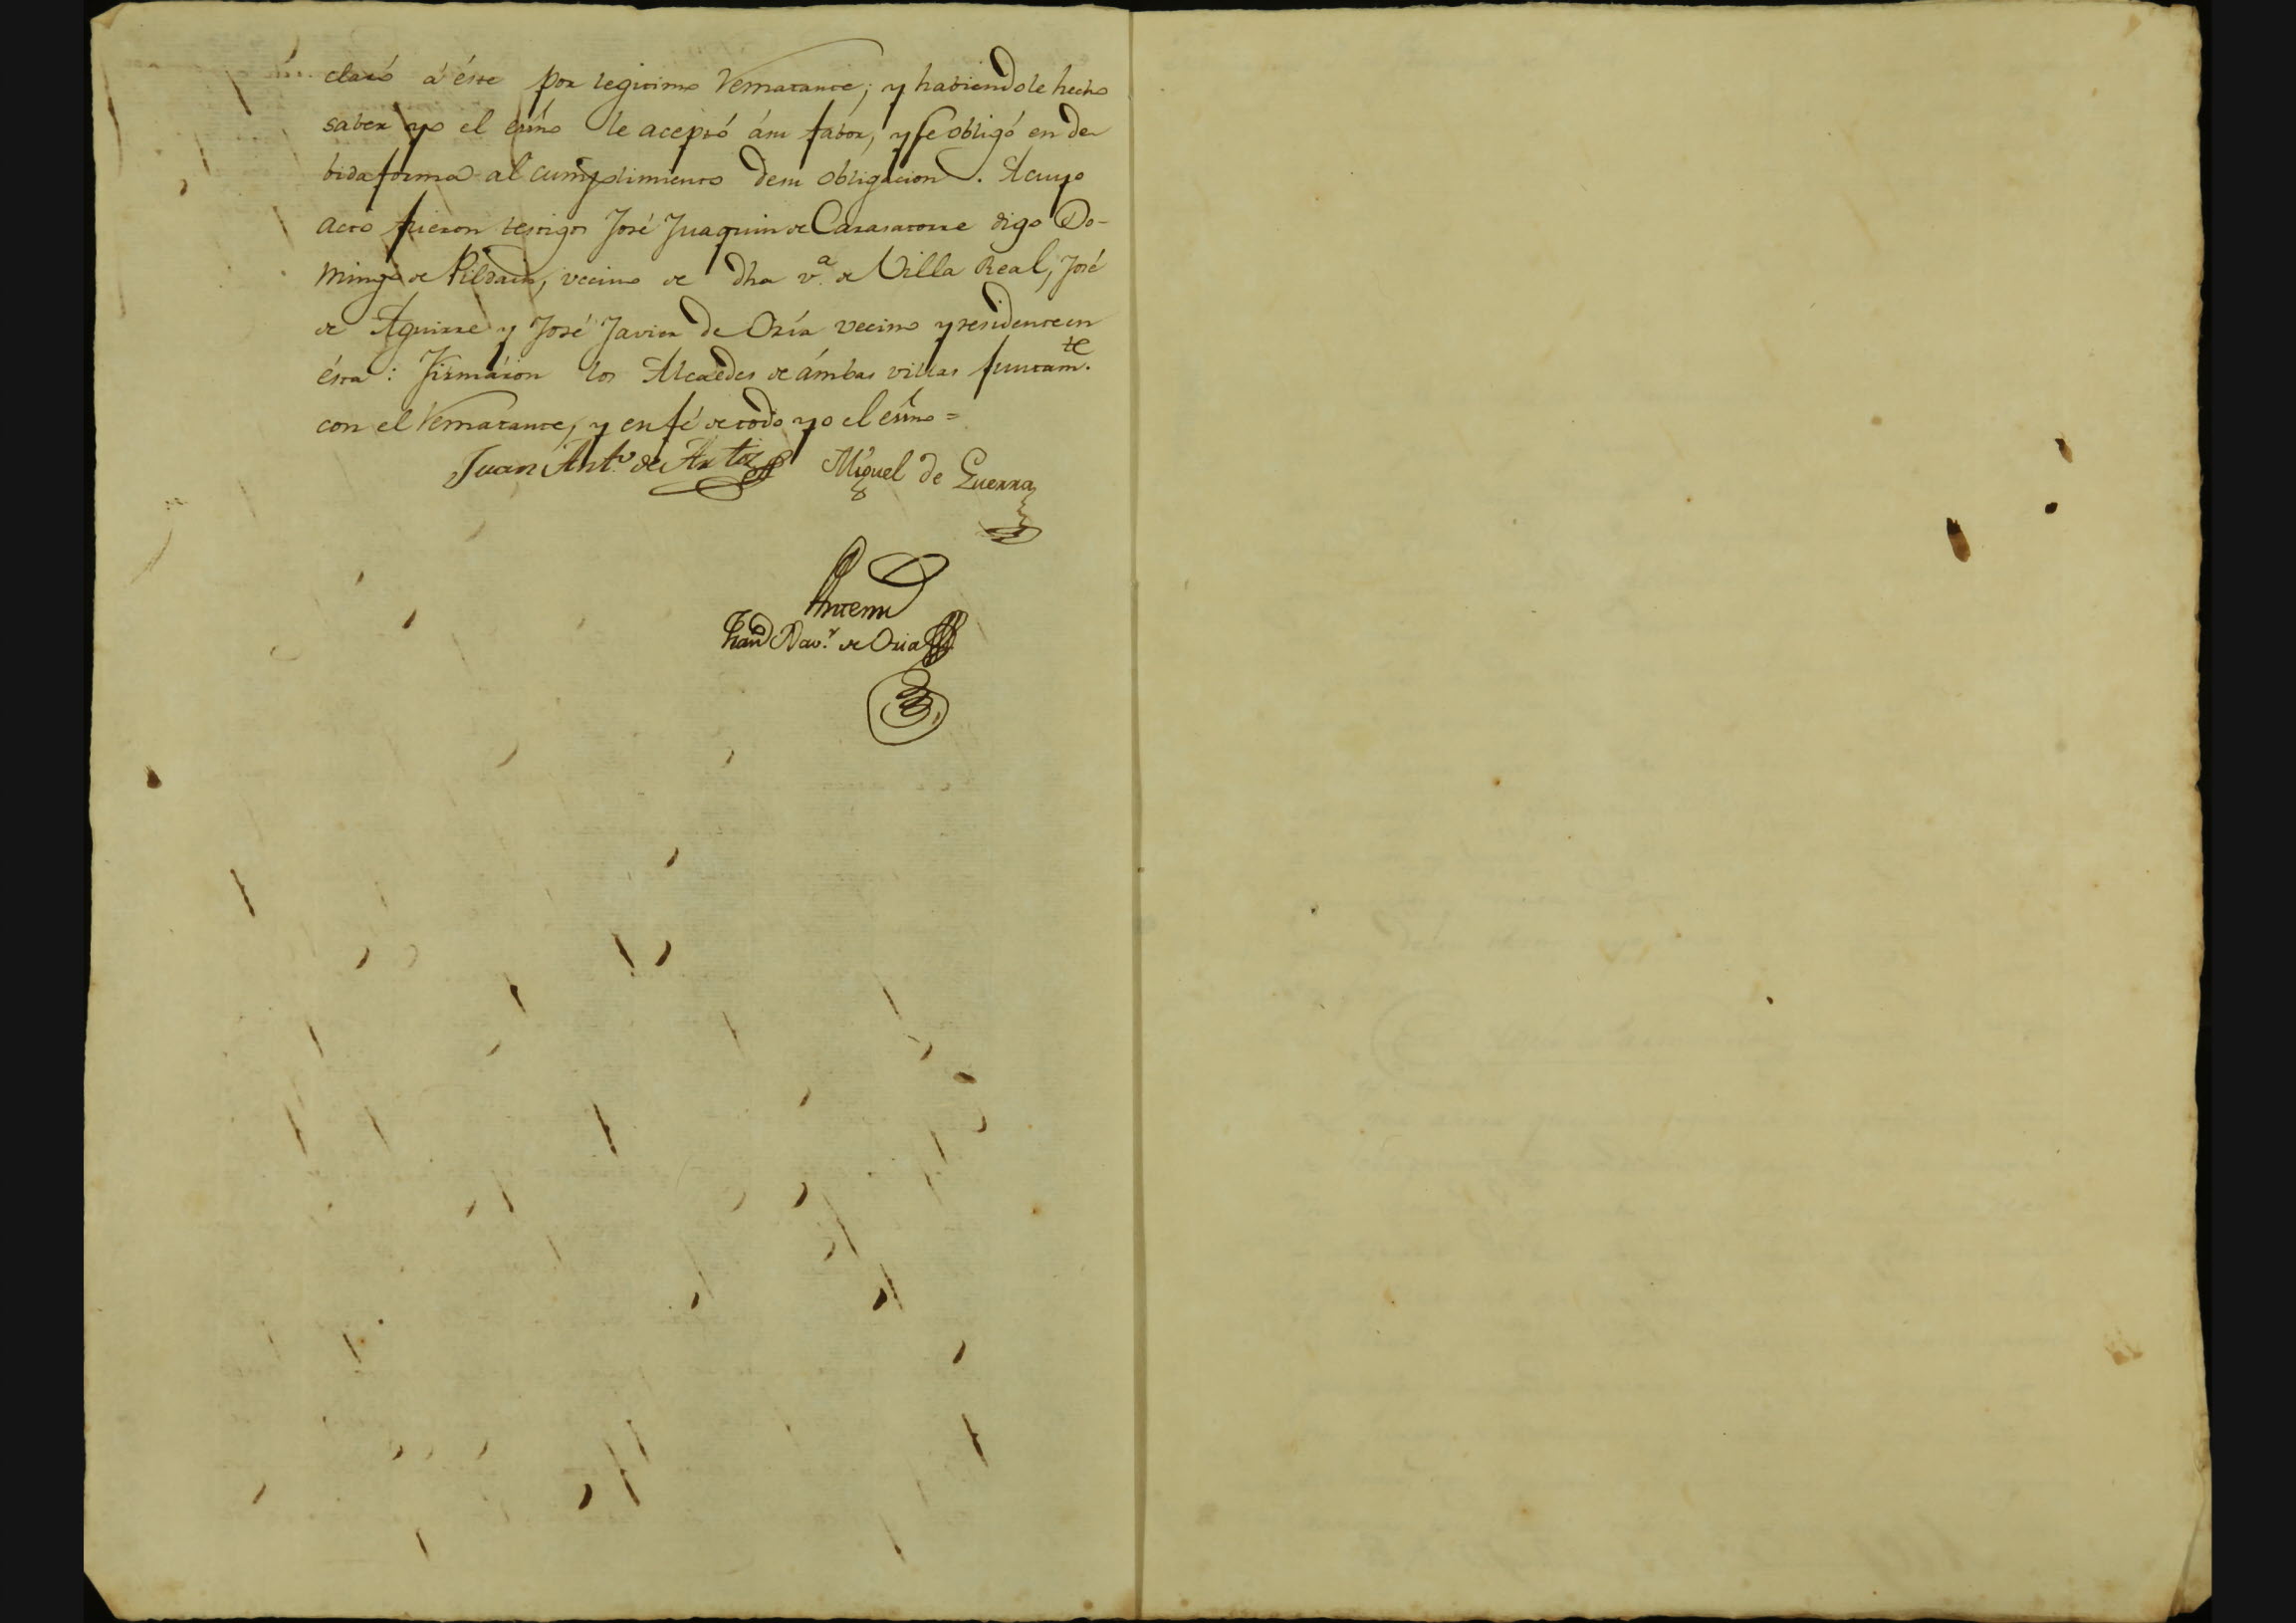 claró á éste por legitimo Rematante; y habiendole hecho
saber yo el esno le aceptó ásu fabor, y se obligó en de
bida forma al cumplimiento desu obligacion. Acuyo
acto fueron testigos José Juaquin de Carasatorre digo Do-
mingo de Pildain, vecino de dha va. de Villa Real, José
de Aguirre y José Javier de Oria vecino y residente en
ésta: Firmáron los Alcaldes de ámbas villas juntamte.
con el Rematante, y en fé de todo yo el esno =
Juan Anto. de Miguel de Guerra
Antemi
Xavr. de Oria